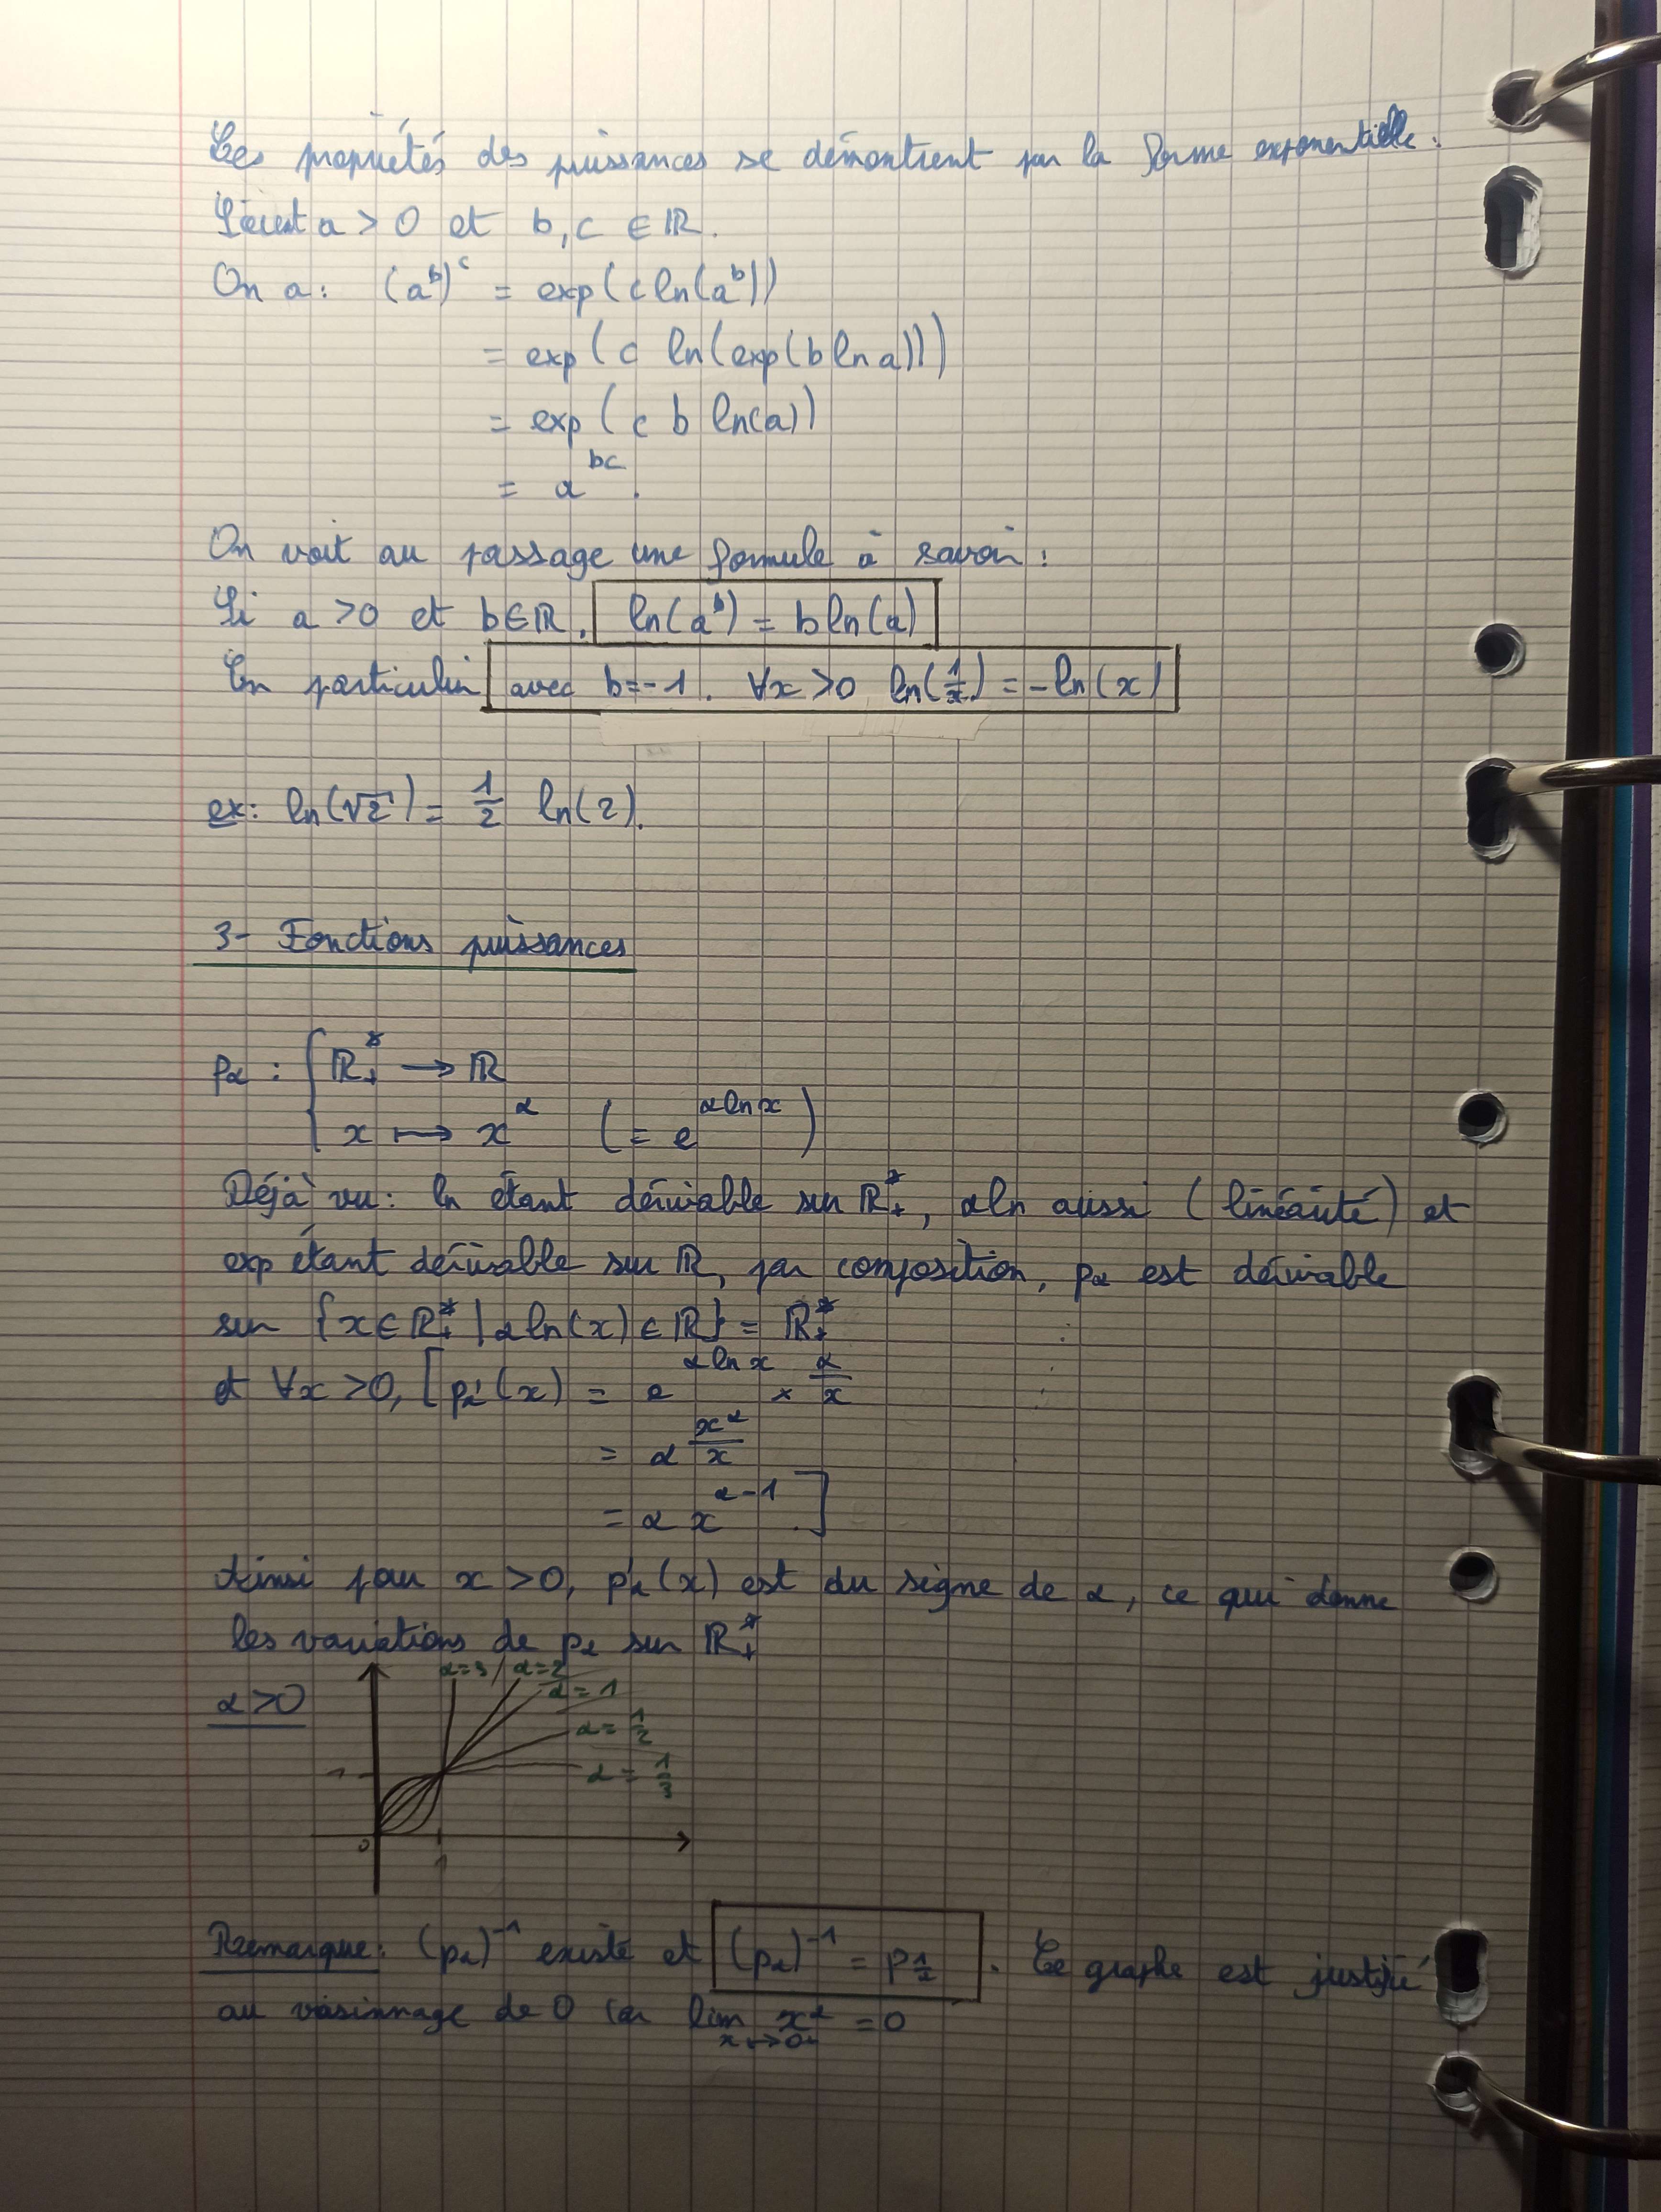 Les propriétés des puissances se démontrent par la forme exponentielle :
Soient a > 0 et b, c ∈ ℝ.
On a : (a^b)^c = exp(c ln(a^b))
= exp(c ln(exp(b ln a)))
= exp(c b ln(a))
= a^{bc}.
On voit au passage une formule à savoir :
Si a > 0 et b ∈ ℝ, ln(a^b) = b ln(a)
En particulier avec b = -1. ∀x > 0 ln(1/x) = -ln(x)
ex : ln(√2) = 1/2 ln(2).
3- Fonctions puissances
p_α : { ℝ₊* → ℝ
x ↦ x^α (= e^{α ln x})
Déjà vu : ln étant dérivable sur ℝ₊*, α ln aussi (linéarité) et
exp étant dérivable sur ℝ, par composition, p_α est dérivable
sur {x ∈ ℝ₊* | α ln(x) ∈ ℝ} = ℝ₊*
et ∀x > 0, [p_α'(x) = e^{α ln x} × α/x
= α x^α/x
= α x^{α-1}.]
Ainsi pour x > 0, p_α'(x) est du signe de α, ce qui donne
les variations de p_α sur ℝ₊*
α > 0
α = 3 α = 2
α = 1
α = 1/2
1 α = 1/3
0
1
Remarque : (p_α)^{-1} existe et (p_α)^{-1} = p_{1/α}. Le graphe est justifié
au voisinnage de 0 car lim_{x→0+} x^α = 0